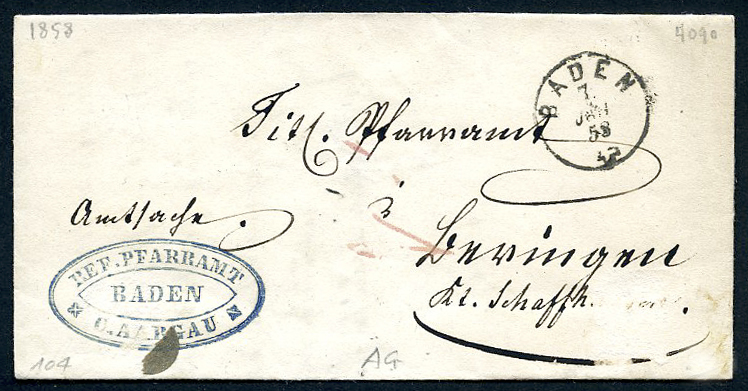 1858
4090
BADEN
7
JAN
58
Titl. Pfarramt
Amtsache.
z
Beringen
Kt. Schaffh.
REF. PFARRAMT
BADEN
C. AARGAU
104
AG